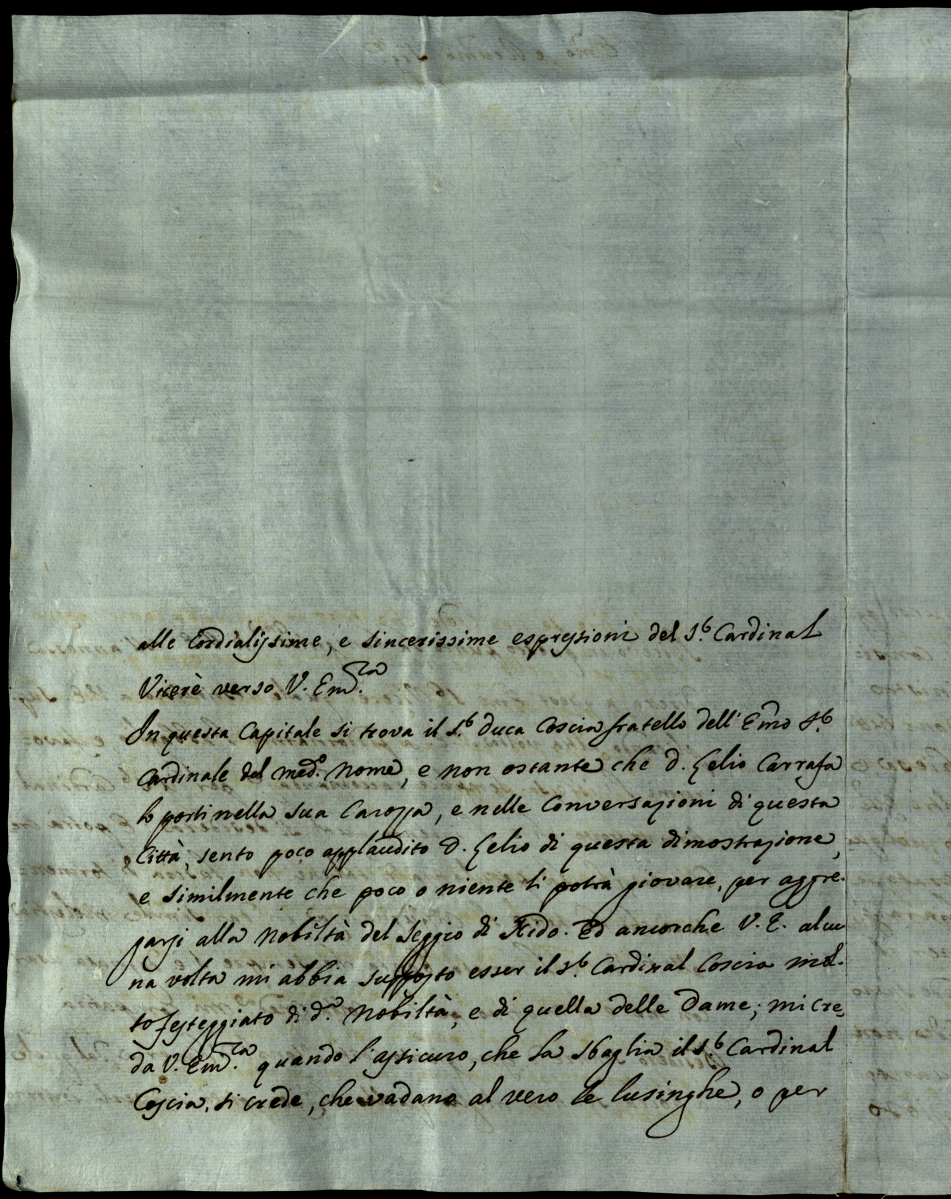 alle Cordialissime, e sincerissime espressioni del S.r Cardinal
Vicerè verso V. Em.za
In questa Capitale si trova il S.r Duca Coscia fratello dell' Emo S.r
Cardinale del med.o nome, e non ostante che D. Lelio Carrafa
lo porti nella sua Carozza, e nelle Conversazioni di questa
Città, sento poco applaudito D. Lelio di questa dimostrazione,
e similmente che poco o niente li potrà giovare, per aggre-
garsi alla Nobiltà del Seggio di Nido. Ed ancorche V. E. alcu
na volta mi abbia supposto esser il S.r Cardinal Coscia mol-
to festeggiato di d.a Nobiltà, e di quella delle Dame; mi cre-
da V. Em.za quando l'assicuro, che la sbaglia il S.r Cardinal
Coscia, si crede, che vadano al vero le lusinghe, o per